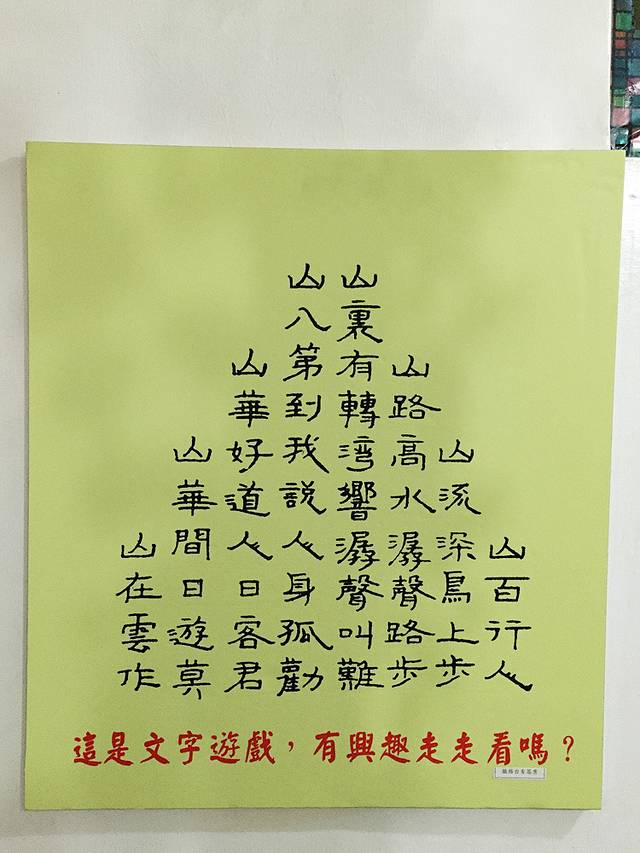 山百行人
山流深鳥上步
山路高水潺聲路步
山裏有轉灣響潺聲叫難
山八第到我說人身孤勸
山華好道人日客君
山華間日遊莫
山在雲作
這是文字遊戲，有興趣走走看嗎？